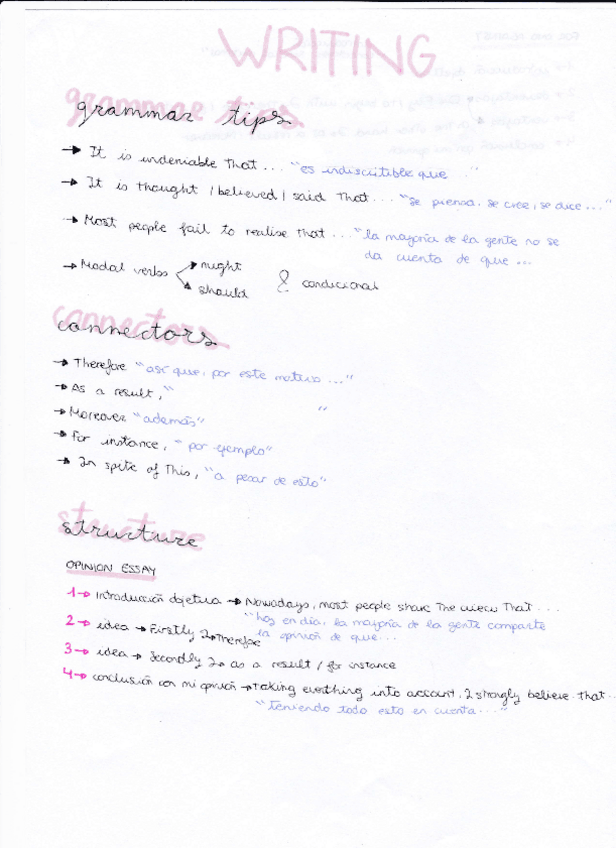 WRITING
grammar tips
→ It is undeniable that... "es indiscutible que ..."
→ It is thought / believed / said that... "se piensa, se cree, se dice ..."
→ Most people fail to realise that ... "la mayoría de la gente no se
da cuenta de que ...
→ Modal verbs → might
→ should
& condicional
connectors
→ Therefore "así que, por este motivo ..."
→ As a result, " "
→ Moreover "además"
→ For instance, "por ejemplo"
→ In spite of this, "a pesar de esto"
structure
OPINION ESSAY
1→ Introducción objetiva → Nowadays, most people share the view that ...
"hoy en día, la mayoría de la gente comparte
la opinión de que...
2→ idea → Firstly → Therefore
3→ idea → Secondly → as a result / for instance
4→ conclusión con mi opinión → Taking everthing into account, I strongly believe that...
"Teniendo todo esto en cuenta ..."